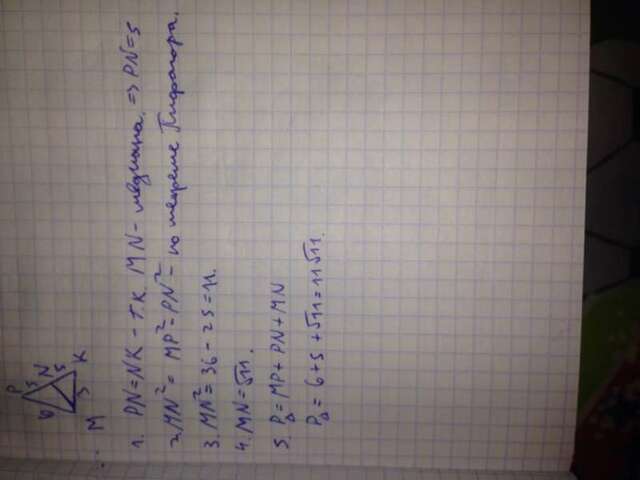 P
6 5 N
5
M 5 K
1. PN = NK - т.к. MN - медиана. => PN = 5
2. MN² = MP² - PN² - по теореме Пифагора.
3. MN² = 36 - 25 = 11.
4. MN = √11.
5. P△ = MP + PN + MN
P△ = 6 + 5 + √11 = 11√11.